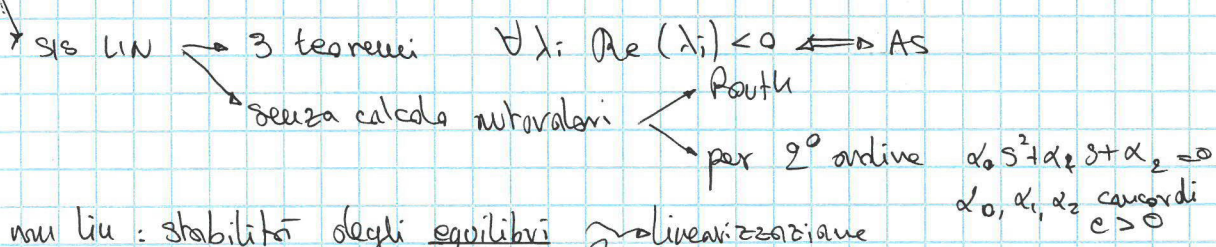 SIS LIN → 3 teoremi ∀ λi Re (λi) < 0 ⟺ AS
senza calcolo autovalori → Routh
→ per 2° ordine α0 S² + α1 S + α2 = 0
α0, α1, α2 concordi
e > 0
non lin : stabilità degli equilibri → linearizzazione